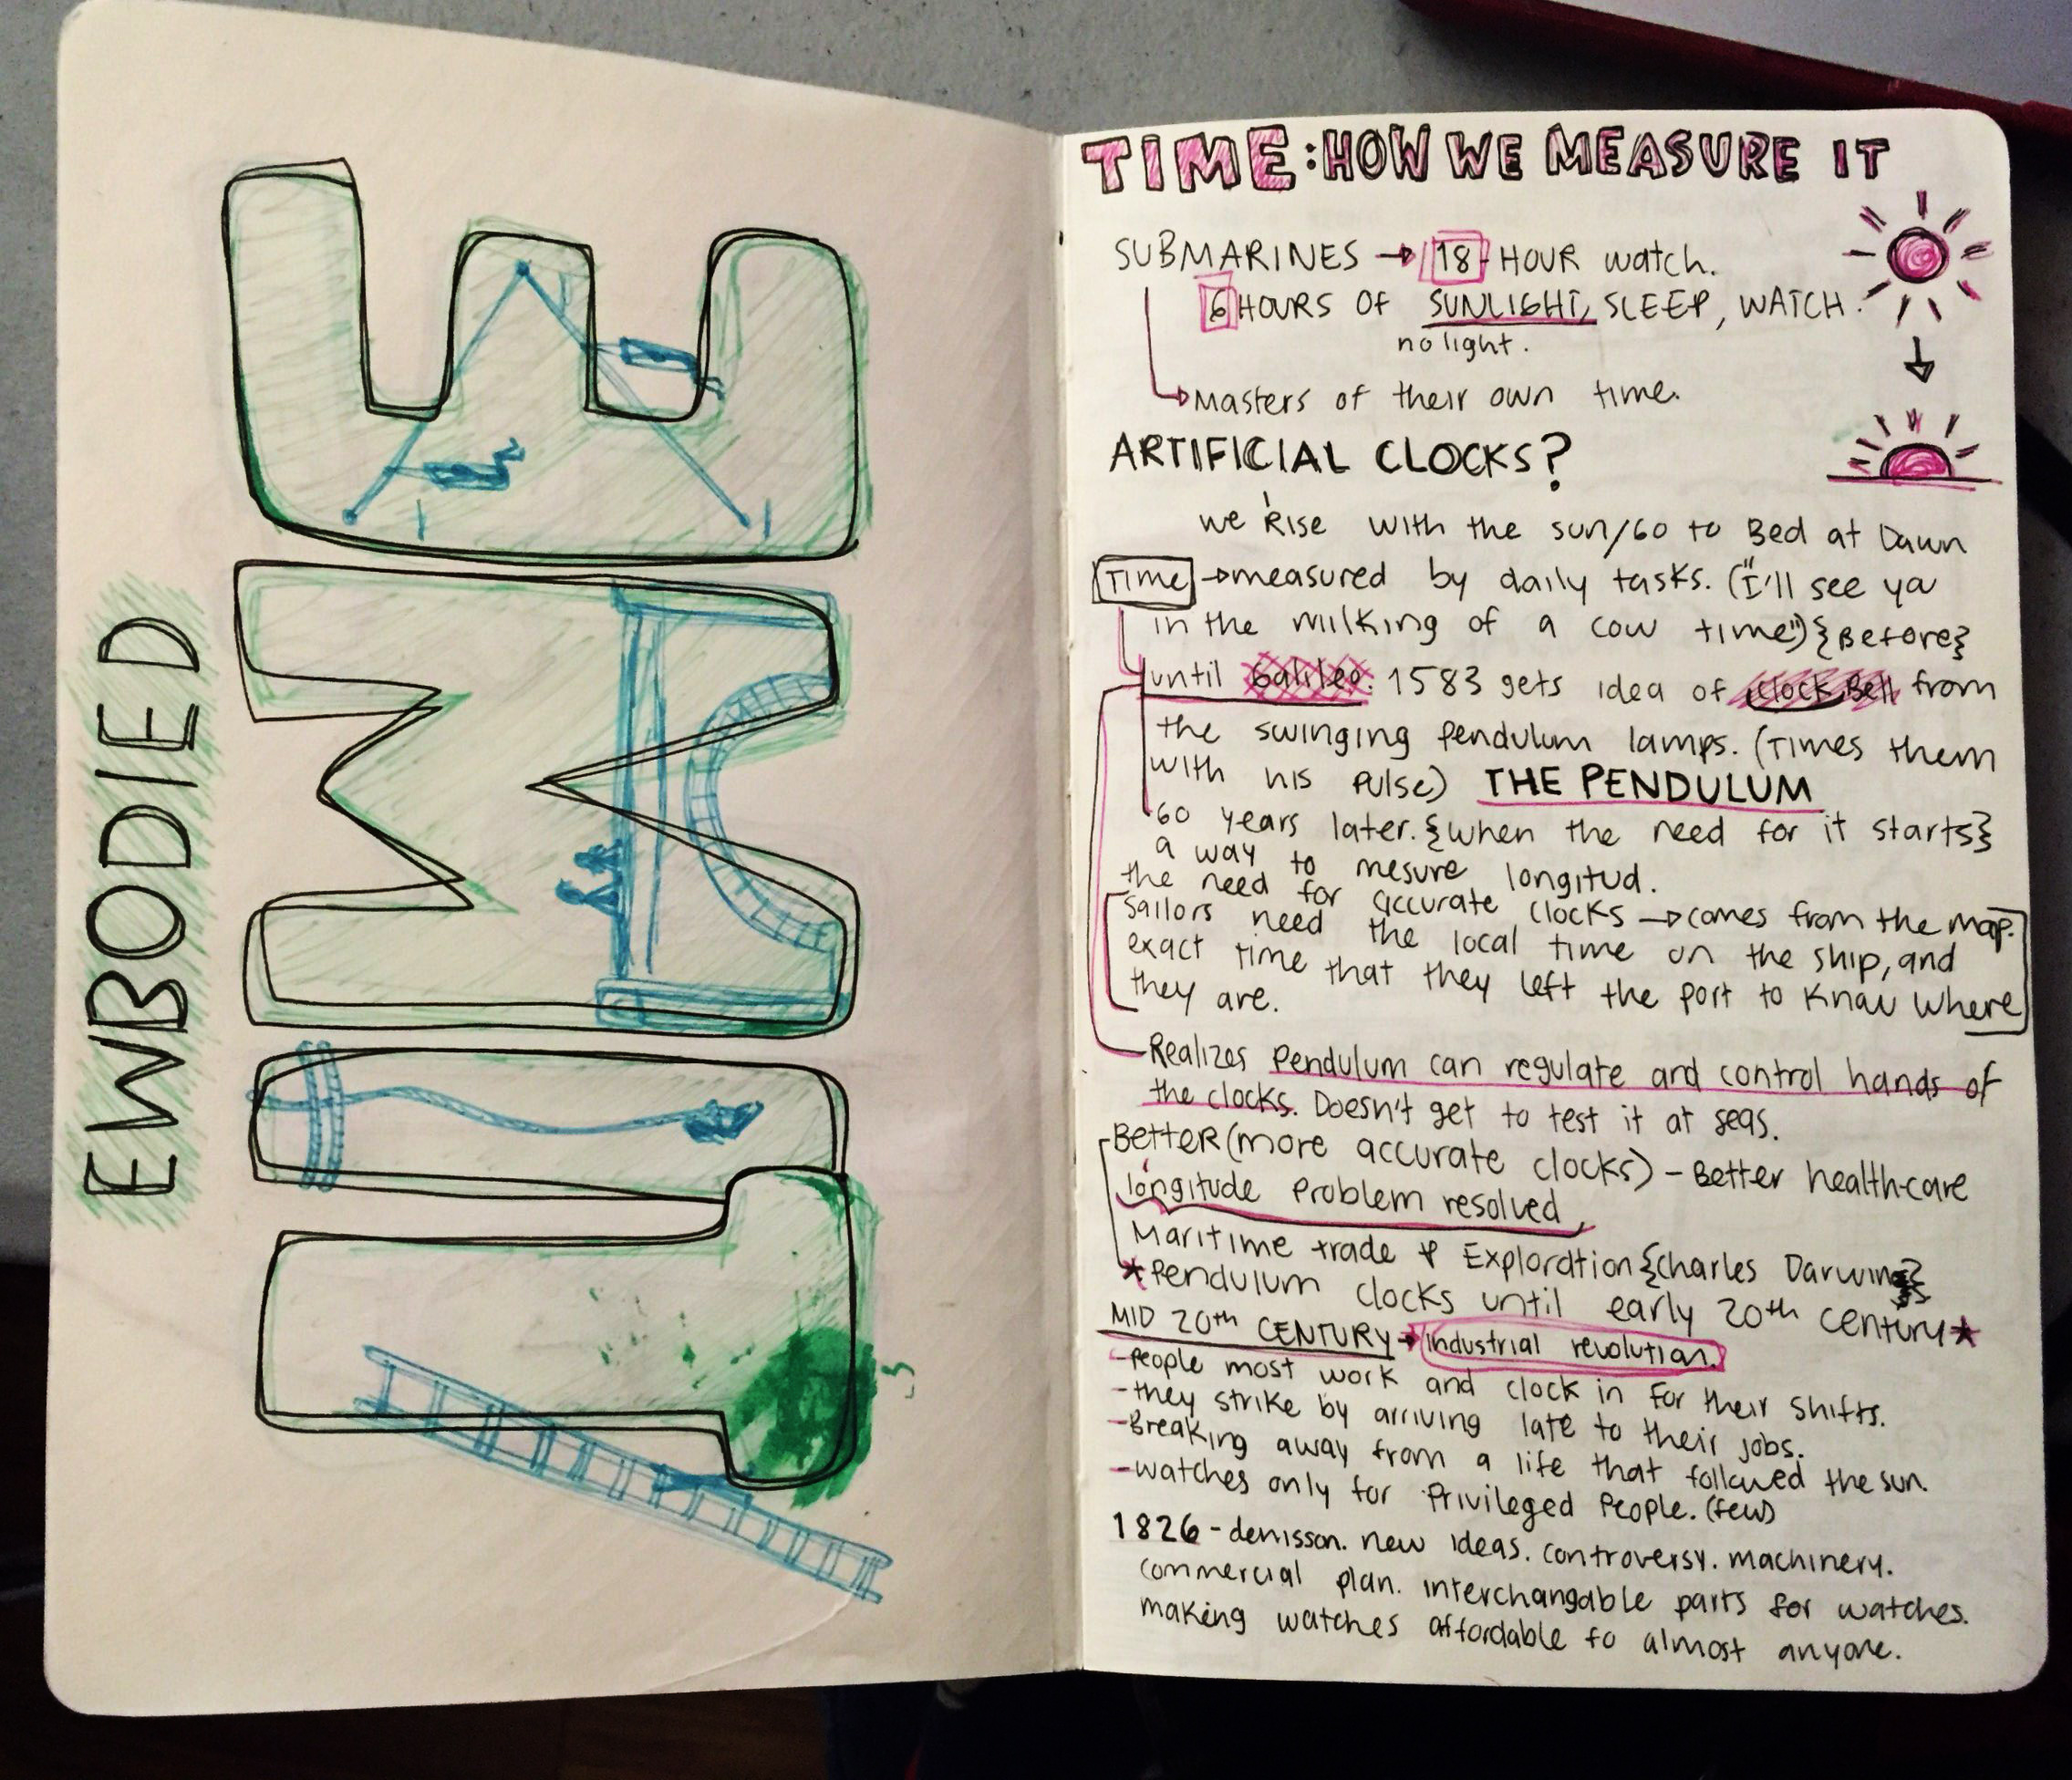 EMBODIED
TIME
TIME: HOW WE MEASURE IT
SUBMARINES → 18-HOUR watch.
6 HOURS OF SUNLIGHT, SLEEP, WATCH.
no light.
→ Masters of their own time.
ARTIFICIAL CLOCKS?
we Rise with the sun/Go to Bed at Dawn
Time → measured by daily tasks. ("I'll see ya
in the milking of a cow time") {Before}
until Galileo: 1583 gets idea of clock Bell from
the swinging pendulum lamps. (Times them
with his pulse) THE PENDULUM
60 years later. {when the need for it starts}
a way to mesure longitud.
the need for accurate clocks → comes from the map.
Sailors need the local time on the ship, and
exact time that they left the port to know where
they are.
Realizes pendulum can regulate and control hands of
the clocks. Doesn't get to test it at seas.
Better (more accurate clocks) - Better health-care
longitude problem resolved,
Maritime trade & Exploration {Charles Darwin}
*Pendulum clocks until early 20th century*
MID 20th CENTURY → Industrial revolution.
-People most work and clock in for their shifts.
-they strike by arriving late to their jobs.
-Breaking away from a life that followed the sun.
-watches only for privileged people. (few)
1826 - denisson. new ideas. controversy. machinery.
commercial plan. interchangable parts for watches.
making watches affordable to almost anyone.